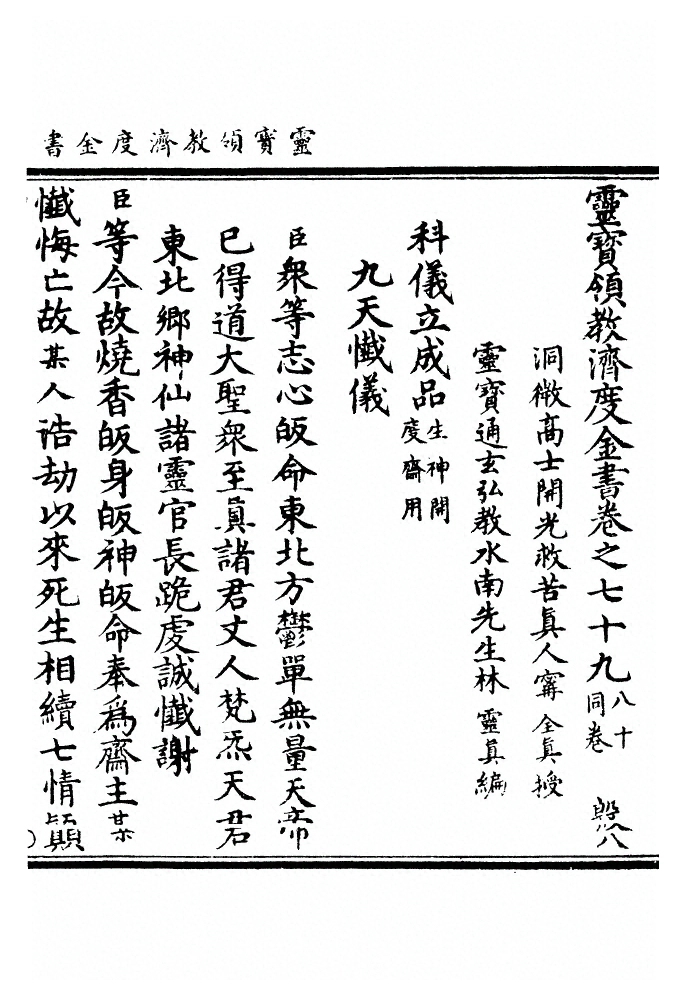 靈寳領教濟度金書
靈寳領教濟度金書卷之七十九 八十同卷 殷八
洞微高士開光救苦眞人寗 全眞授
靈寳通玄弘教水南先生林 靈眞編
科儀立成品 生神開度齋用
九天懺儀
臣衆等志心皈命東北方鬱單無量天帝
已得道大聖衆至眞諸君丈人梵炁天君
東北鄉神仙諸靈官長跪虔誠懺謝
臣等今故燒香皈身皈神皈命奉爲齋主某
懺悔亡故某人浩劫以來死生相續七情顚